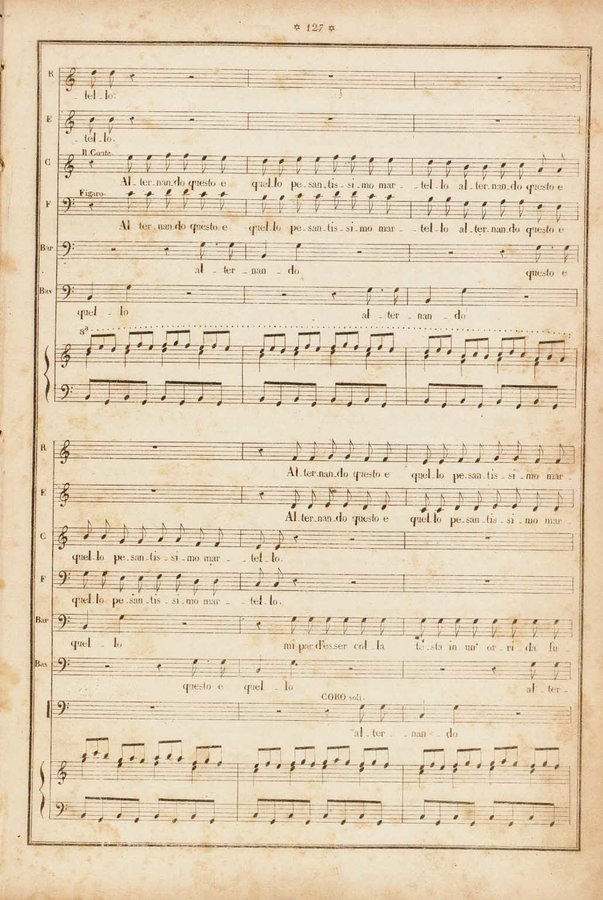 ✡ 127 ✡
R
tel_lo.
E
tel_lo.
C
Il Conte.
Al_ter_nan_do questo e quel_lo pe_san_tis_si_mo mar_ _tel_lo al_ter_nan_do questo e
F
Figaro.
Al_ter_nan_do questo e quel_lo pe_san_tis_si_mo mar_ _tel_lo al_ter_nan_do questo e
Bar
al_ter_nan_do questo e
Bas
quel_lo al_ter_nan_do
8ª
R
Al_ter_nan_do questo e quel_lo pe_san_tis_si_mo mar_
E
Al_ter_nan_do questo e quel_lo pe_san_tis_si_mo mar_
C
quel_lo pe_san_tis_si_mo mar_ _tel_lo.
F
quel_lo pe_san_tis_si_mo mar_ _tel_lo.
Bar
quel_lo mi par d'esser col_la te_sta in un' or_ri_da fu
Bas
questo e quel_lo al_ter_
CORO soli.
al_ter_nan_do